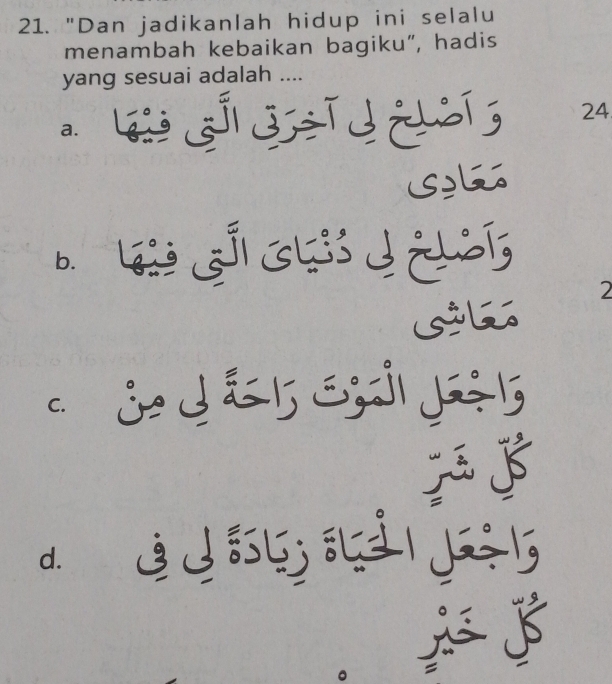 21. "Dan jadikanlah hidup ini selalu
menambah kebaikan bagiku", hadis
yang sesuai adalah ....
a. وَ اَصْلِحْ لِى آخِرَتِى الَّتِى فِيْهَا
مَعَادِى
b. وَاَصْلِحْ لِى دُنْيَاىَ الَّتِى فِيْهَا
مَعَاشِى
c. وَاجْعَلِ الْمَوْتَ رَاحَةً لِى مِنْ
كُلِّ شَرٍّ
d. وَاجْعَلِ الْحَيَاةَ زِيَادَةً لِى فِى
كُلِّ خَيْرٍ
24.
2